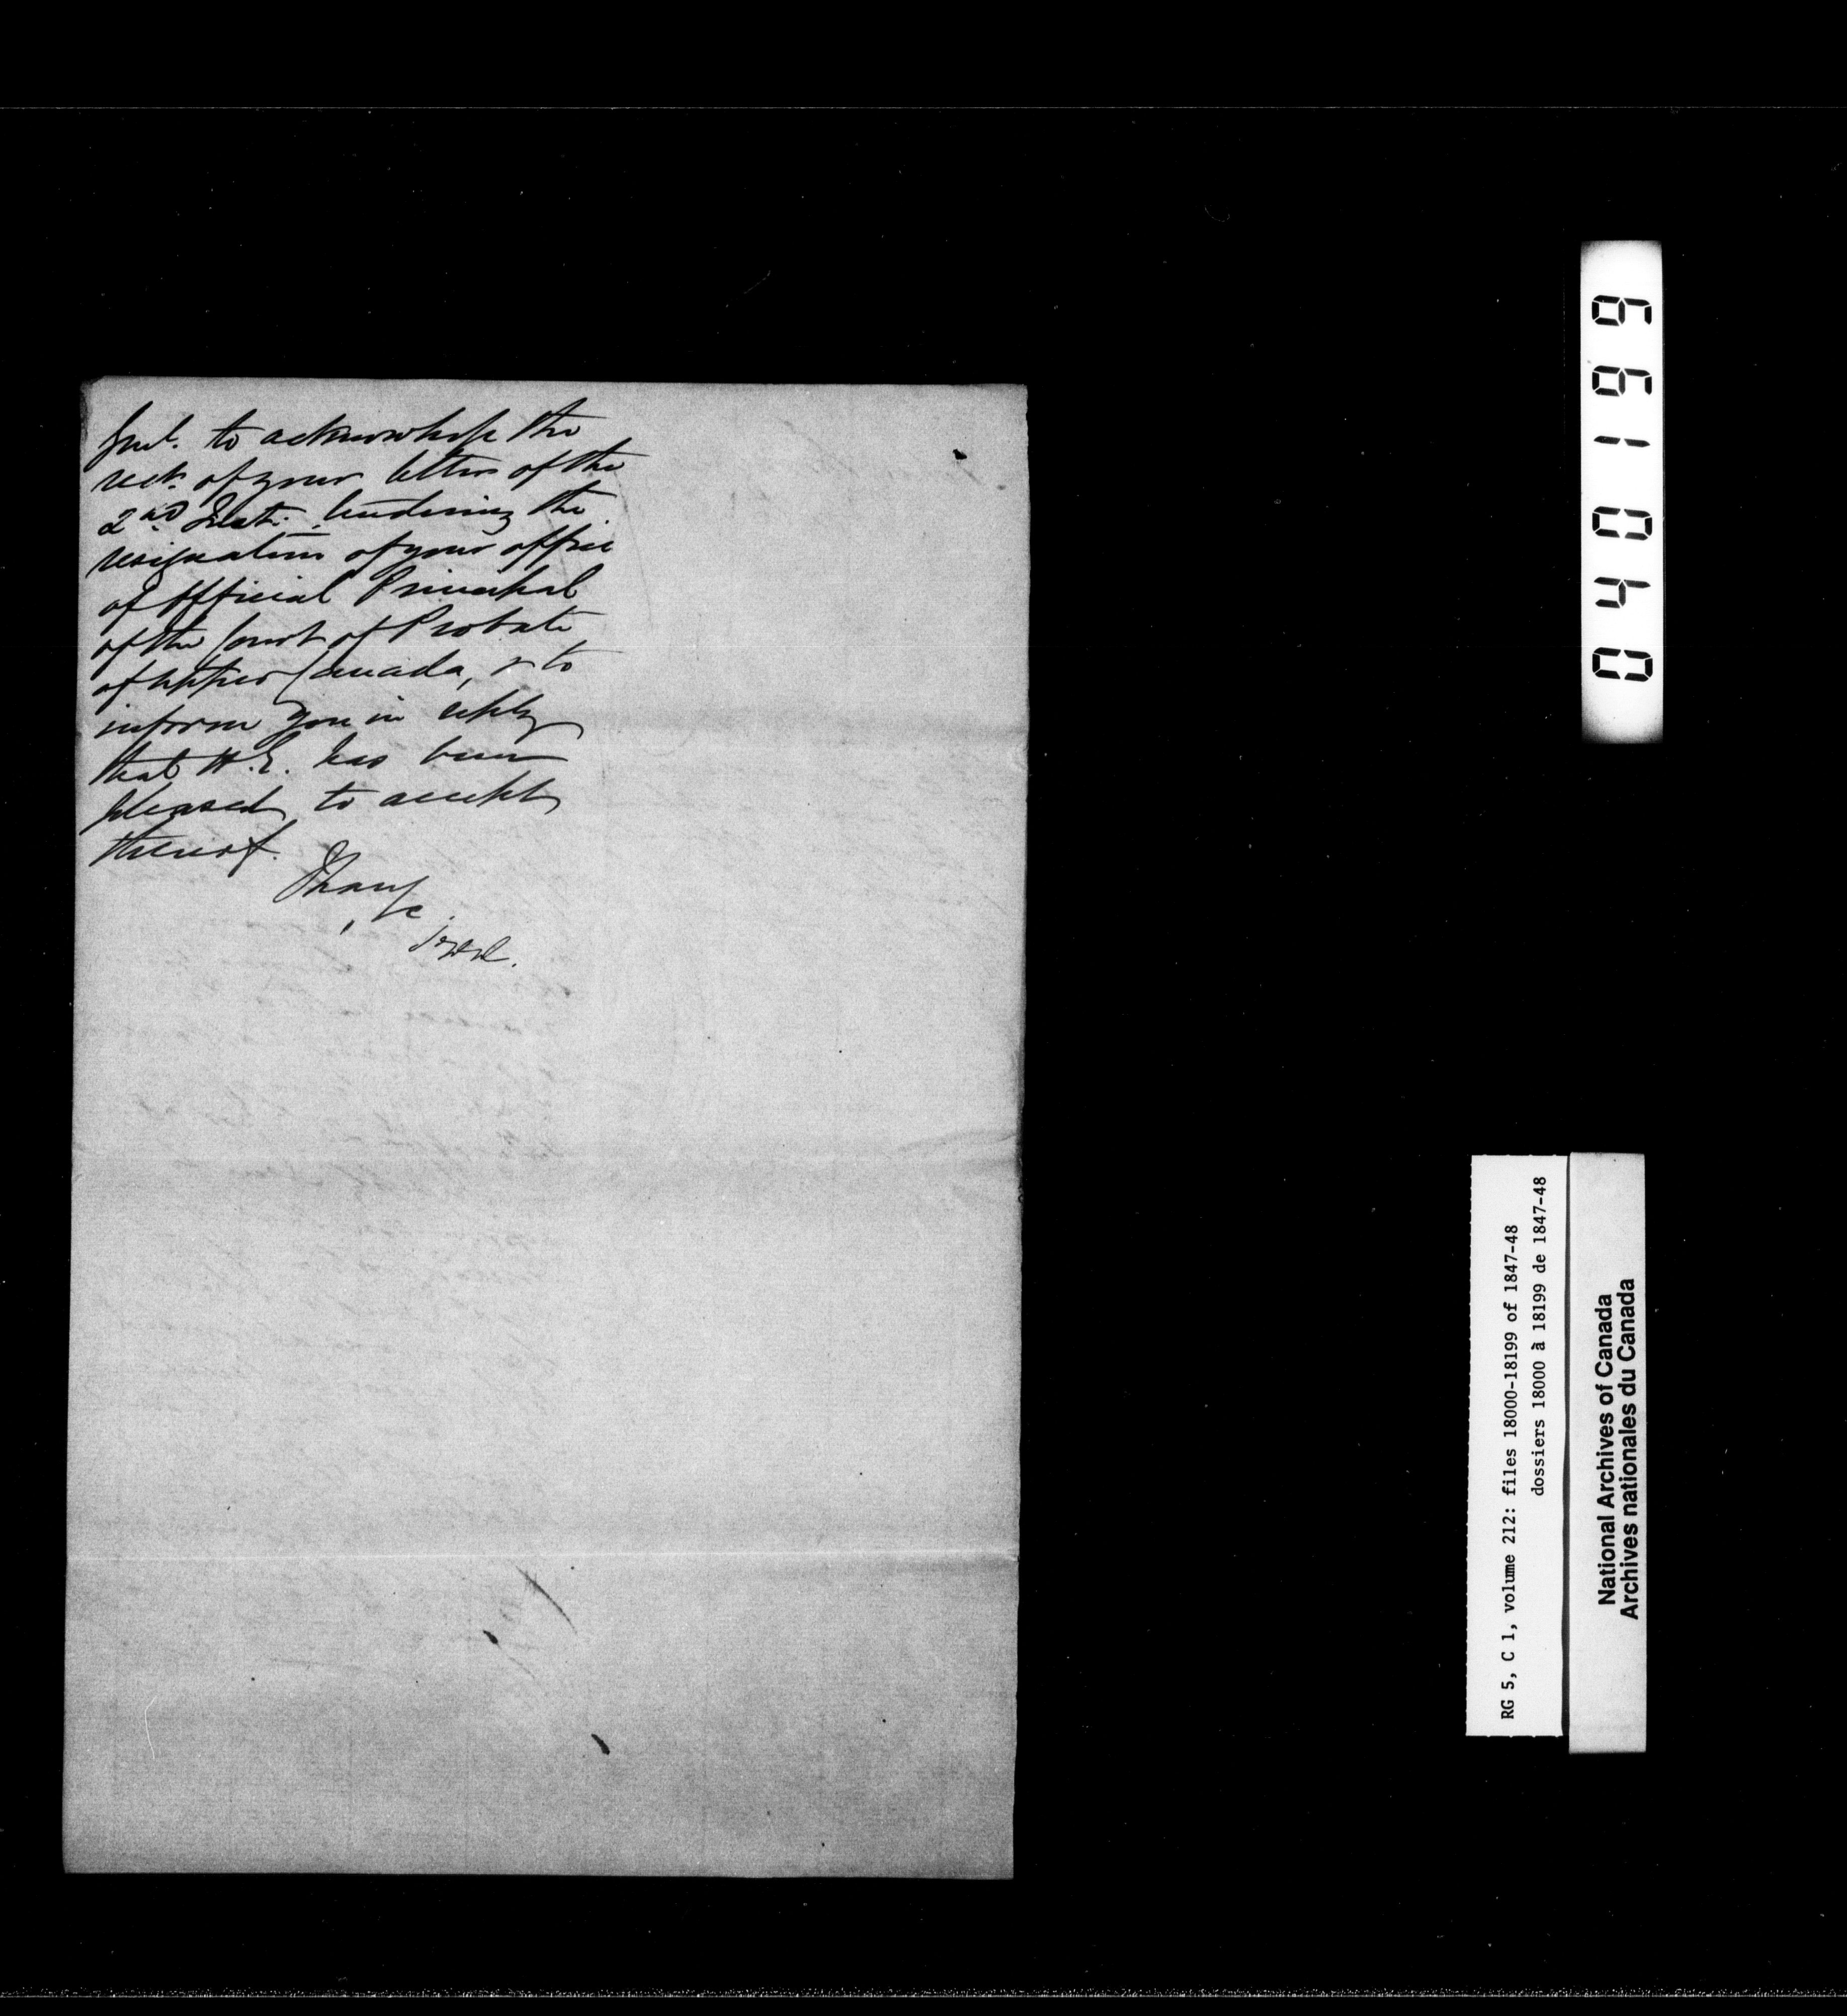 Genl. to acknowledge the
rect. of your letter of the
2nd Inst. tendering the
resignation of your office
of Official Principal
of the Court of Probate
of Upper Canada, & to
inform you in reply
that H.E. has been
pleased to accept
thereof.
I have &c
040199
RG 5, C 1, volume 212: files 18000-18199 of 1847-48
dossiers 18000 à 18199 de 1847-48
National Archives of Canada
Archives nationales du Canada